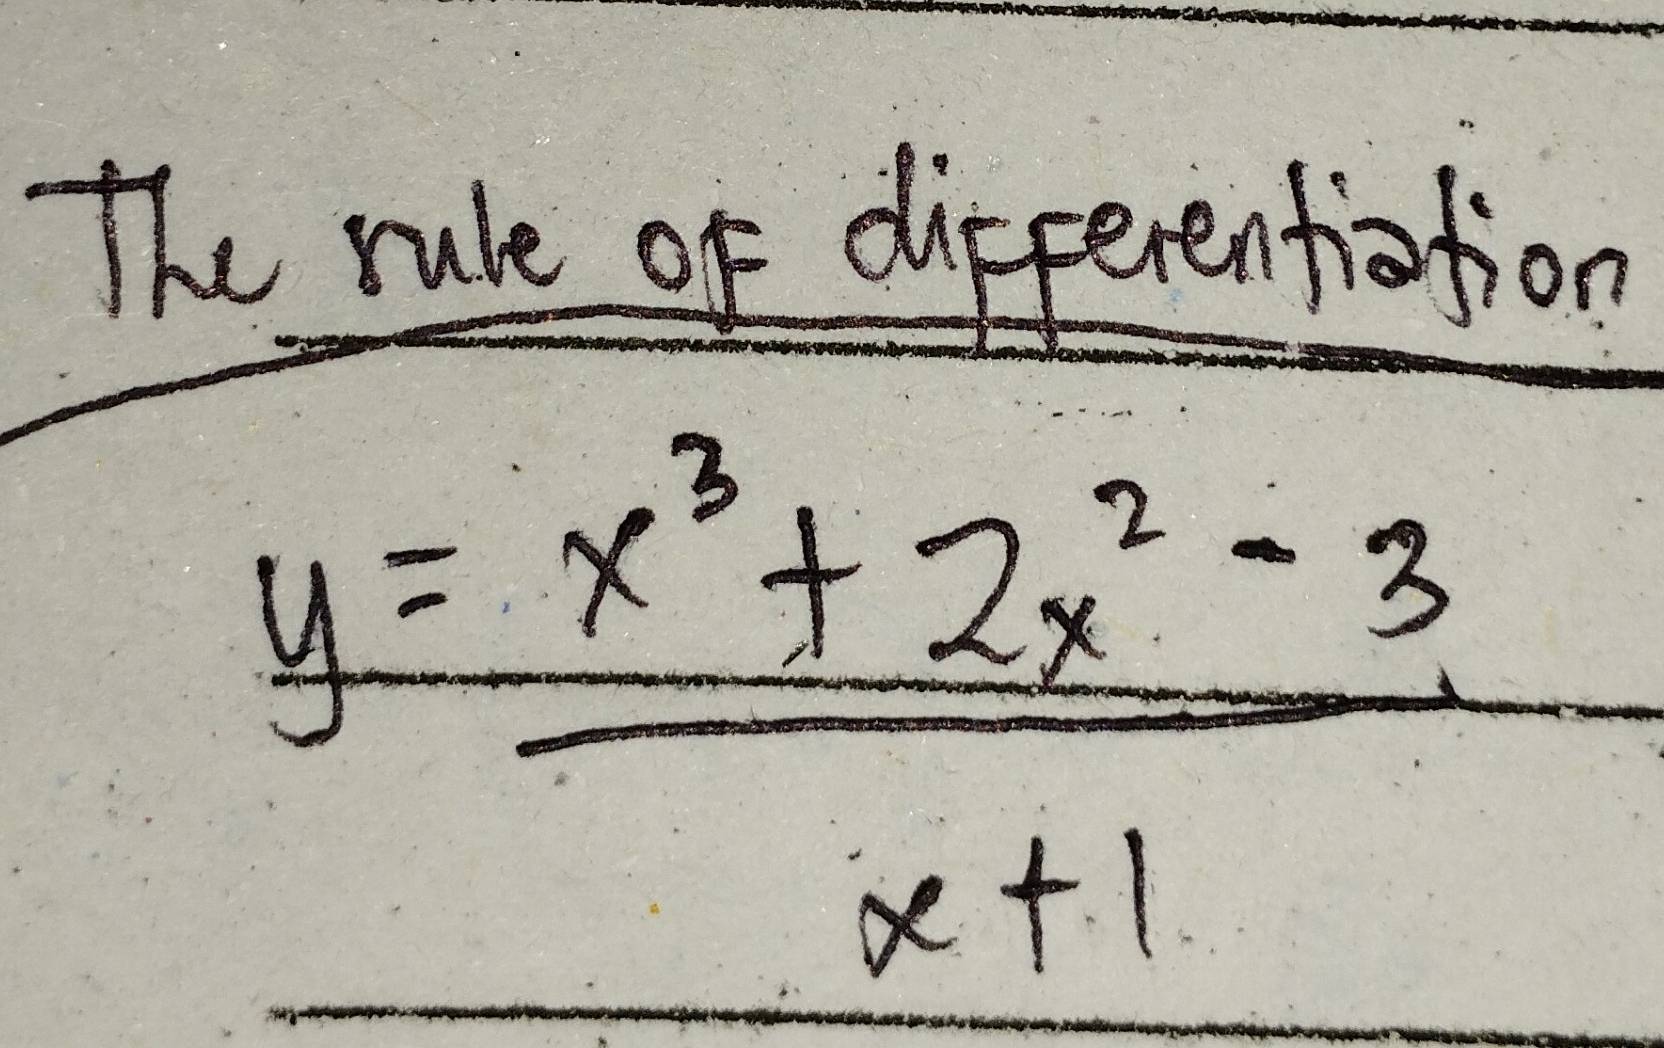 The rule of differentiation
y = x³ + 2x² - 3
x + 1